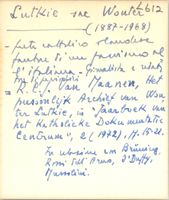 Lutkie Wouter 612
(1887-1968)
- prete cattolico olandese
fautore di un fascismo al-
l'italiana. Giornalista e
R. L. J. Van Maanen, Het
persoonlijk Archief van Wou-
ter Lutkie, in "Jaarboek van
het Katholieke Documentatie
Centrum", 2 (1972), 15-21.
Fu ubracine un Brüning,
Rossi dell'Arno, D'Duffy,
Mussolini.